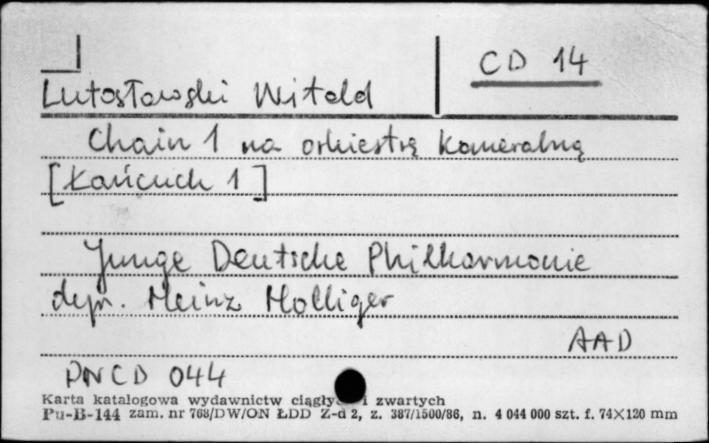 CD 14
Lutosławski Witold
Chain 1 na orkiestrę kameralną
[Łańcuch 1]
Junge Deutsche Philharmonie
dyr. Heinz Holliger
AAD
PNCD 044
Karta katalogowa wydawnictw ciągły i zwartych
Pu-B-144 zam. nr 768/DW/ON ŁDD Z-d 2, z. 387/1500/86, n. 4 044 000 szt. f. 74×120 mm